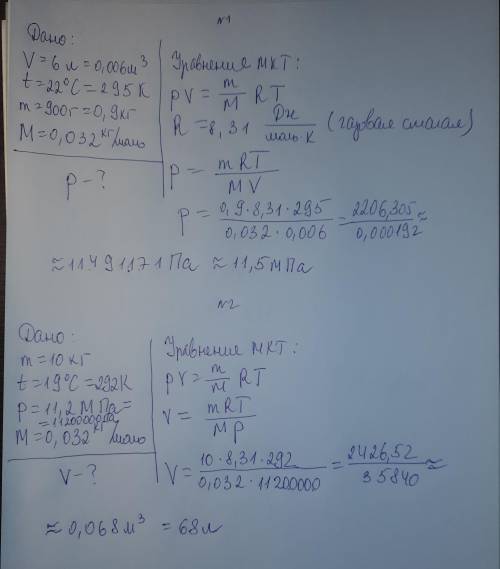 №1
Дано:
V = 6 л = 0,006 м³
t = 22°C = 295 K
m = 900г = 0,9 кг
M = 0,032 кг/моль
p - ?
Уравнение МКТ:
pV = m/M RT
R = 8,31 Дж/моль·K (газовая
p = mRT/MV
p = 0,9·8,31·295/0,032·0,006 = 2206,305/0,000192 ≈
≈ 11491171 Па ≈ 11,5 МПа
№2
Дано:
m = 10 кг
t = 19°C = 292K
p = 11,2 МПа =
= 11200000 Па
M = 0,032 кг/моль
V - ?
Уравнение МКТ:
pV = m/M RT
V = mRT/Mp
V = 10·8,31·292/0,032·11200000 = 2426,52/35840 ≈
≈ 0,068 м³ = 68 л